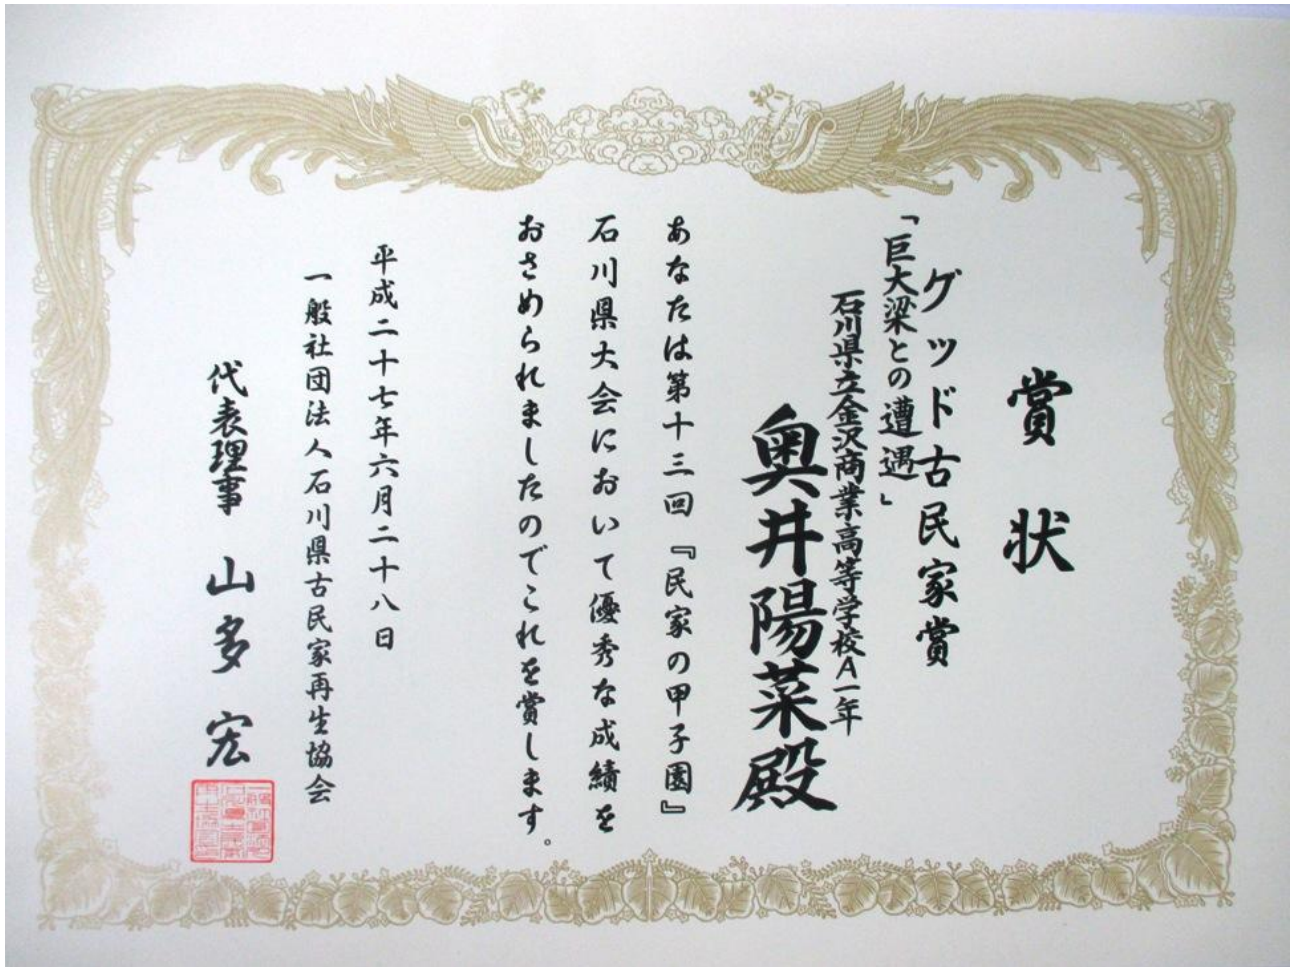 賞状
グッド古民家賞
「巨大梁との遭遇」
石川県立金沢商業高等学校A一年
奥井陽菜殿
あなたは第十三回『民家の甲子園』
石川県大会において優秀な成績を
おさめられましたのでこれを賞します。
平成二十七年六月二十八日
一般社団法人石川県古民家再生協会
代表理事 山多宏